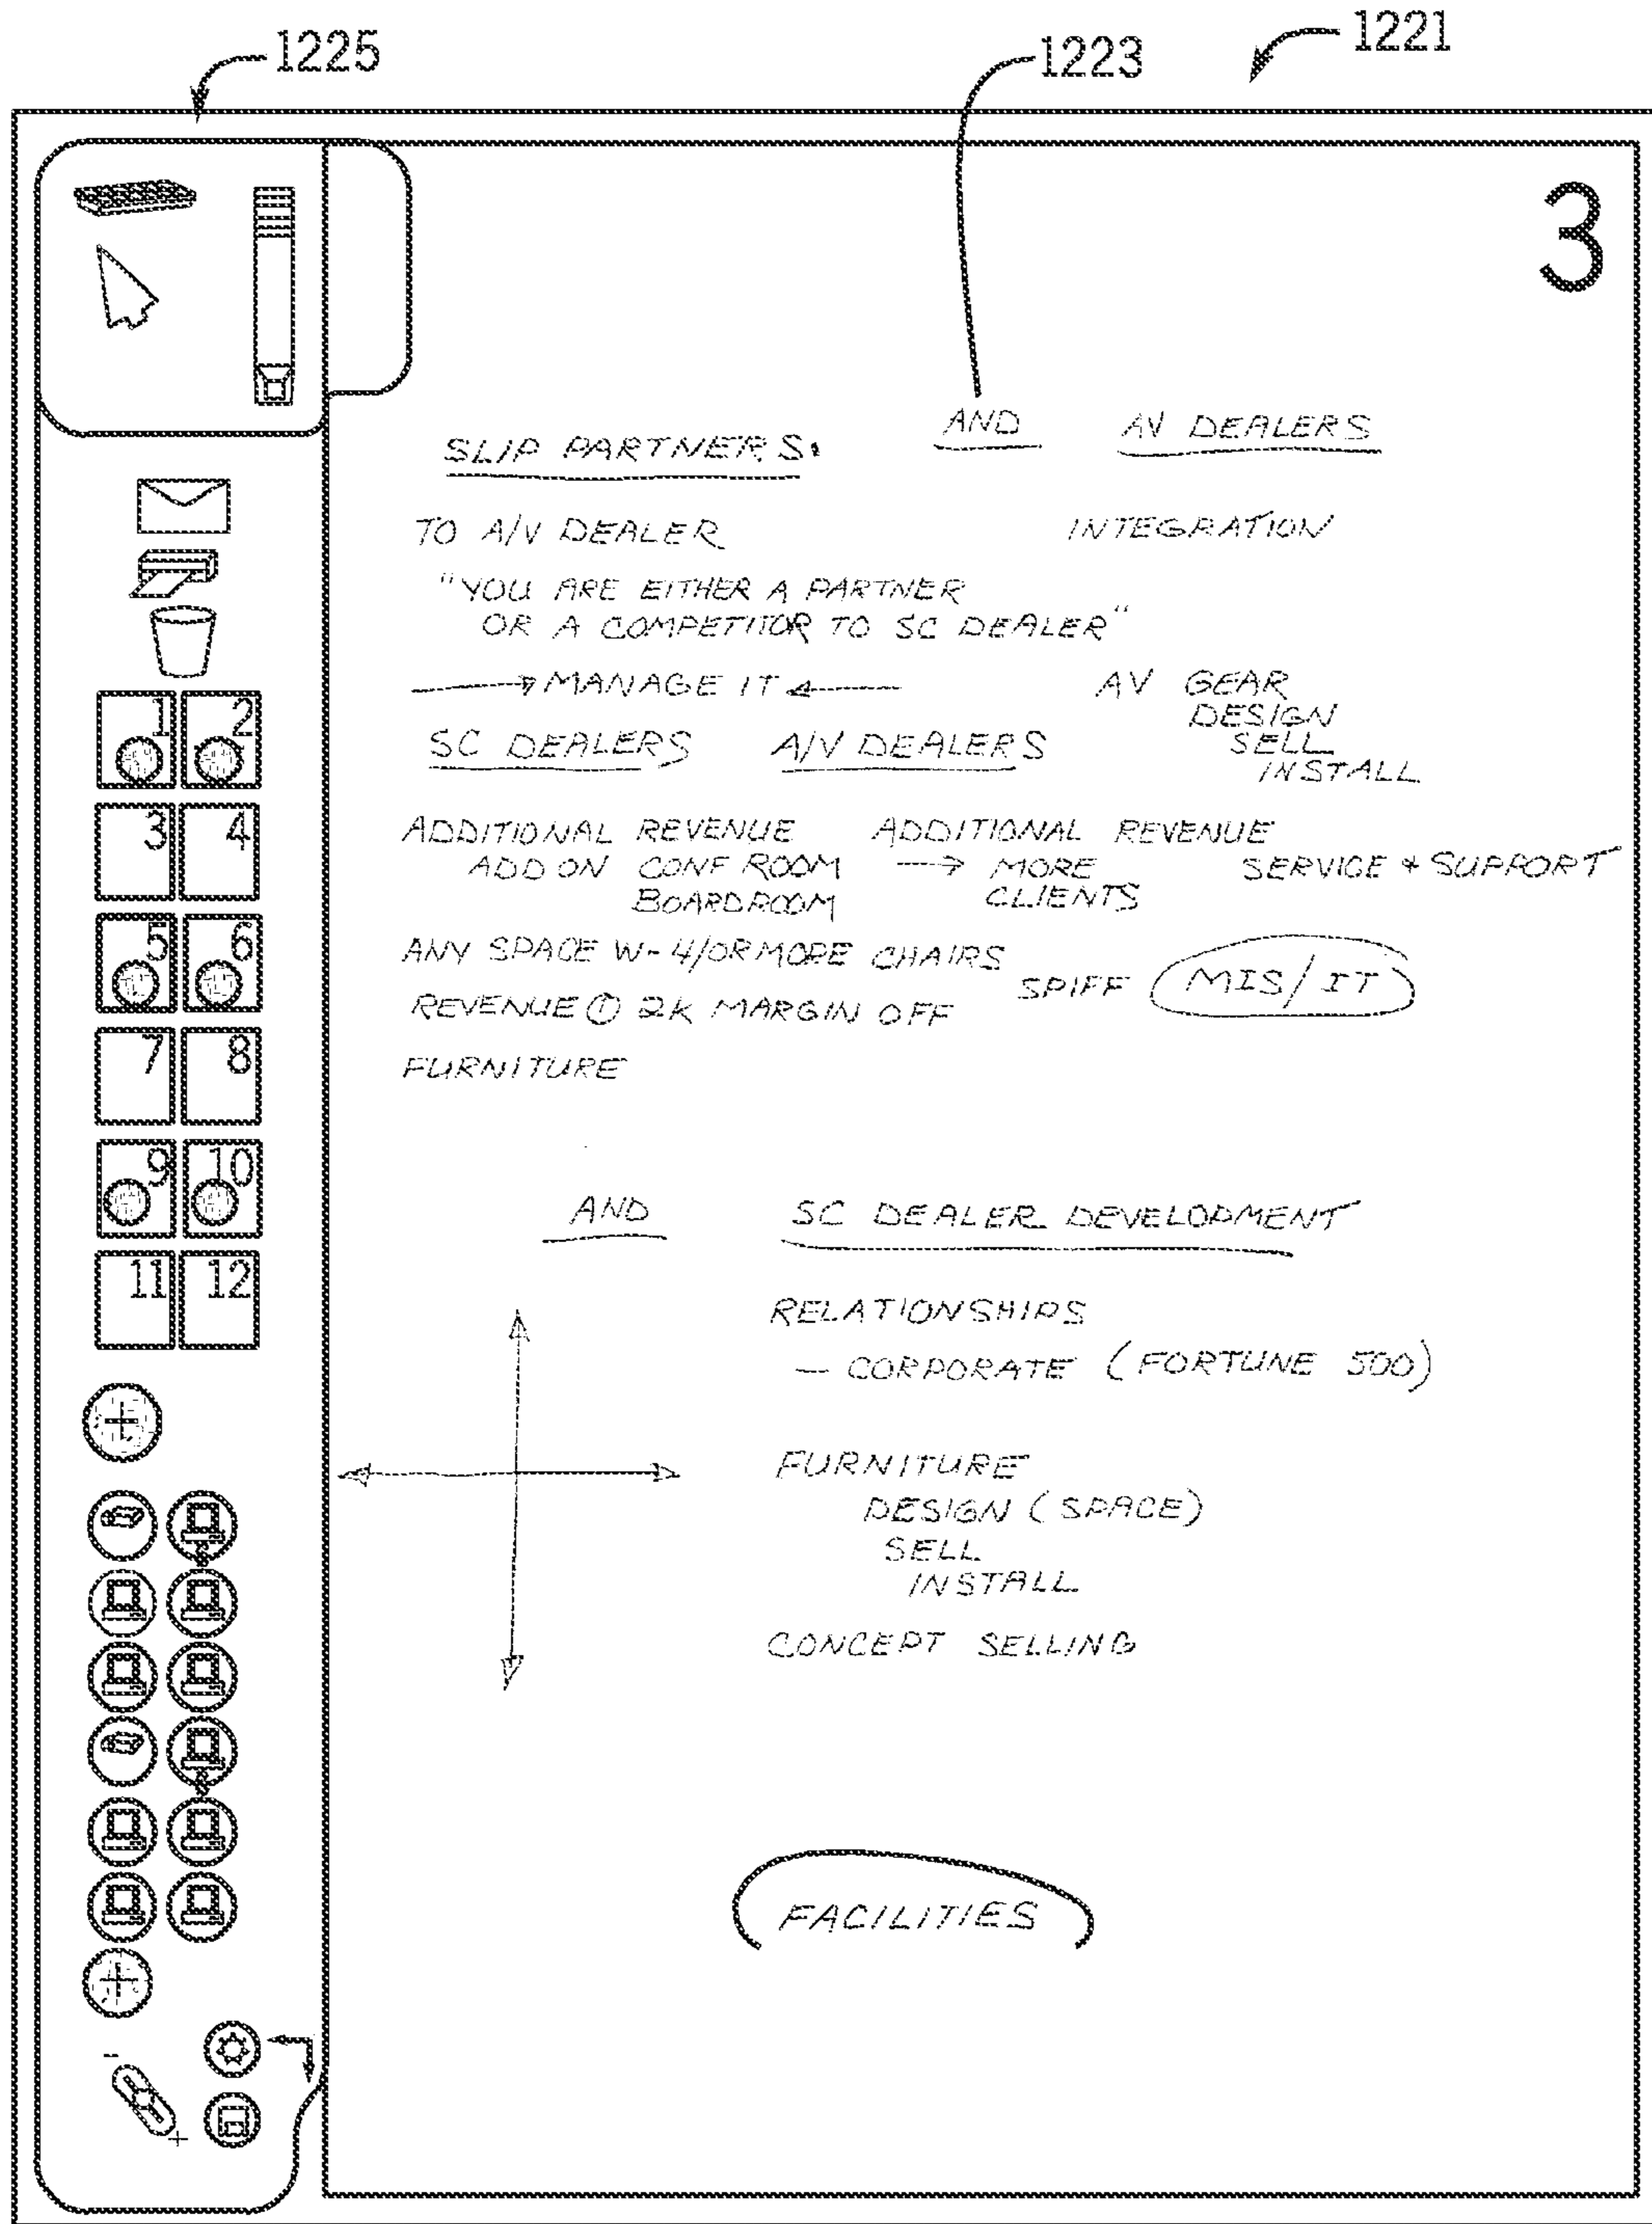 1225
1223
1221
3
SLIP PARTNERS:
AND
AV DEALERS
TO A/V DEALER
INTEGRATION
"YOU ARE EITHER A PARTNER
OR A COMPETITOR TO SC DEALER"
MANAGE IT
AV GEAR
DESIGN
SELL
INSTALL
SC DEALERS
A/V DEALERS
ADDITIONAL REVENUE
ADD ON CONF ROOM
BOARDROOM
ADDITIONAL REVENUE
MORE
CLIENTS
SERVICE + SUPPORT
ANY SPACE W- 4/OR MORE CHAIRS
SPIFF MIS/IT
REVENUE ① 2K MARGIN OFF
FURNITURE
AND
SC DEALER DEVELOPMENT
RELATIONSHIPS
— CORPORATE (FORTUNE 500)
FURNITURE
DESIGN (SPACE)
SELL
INSTALL
CONCEPT SELLING
FACILITIES
1 2
3 4
5 6
7 8
9 10
11 12
+
+
-
+